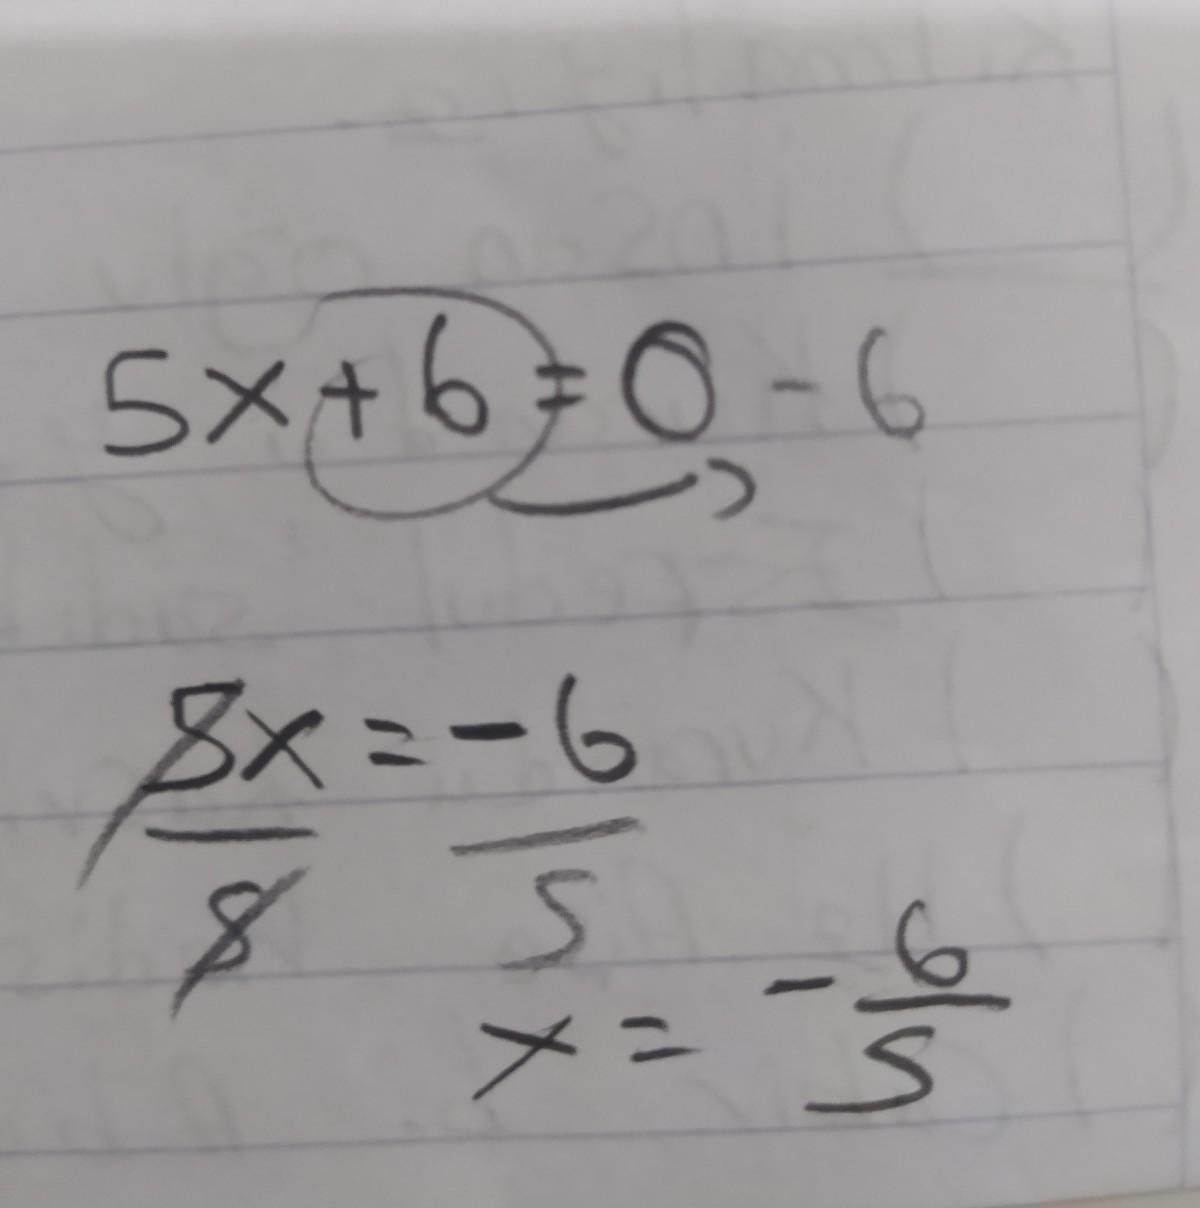 5x+6=0-6
5x=-6
5 5
x=-6
5